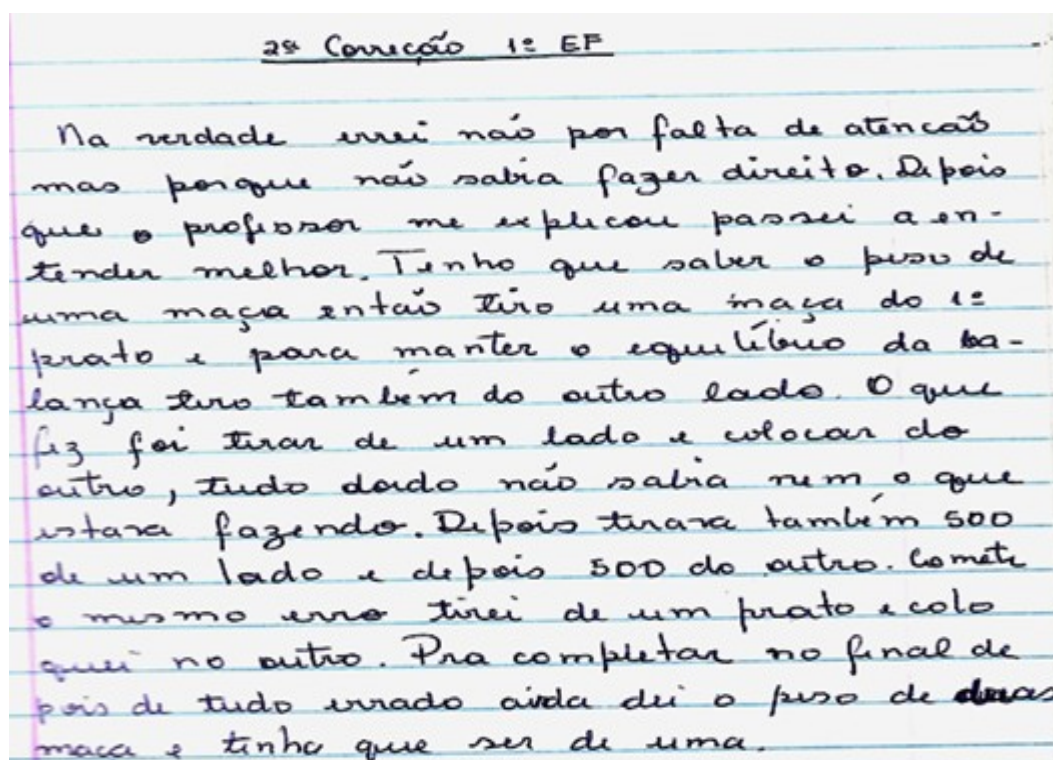 2ª Correção 1º EF
Na verdade errei não por falta de atencão
mas porque não sabia fazer direito. Depois
que o professor me explicou passei a en-
tender melhor. Tenho que saber o peso de
uma maça então tiro uma maça do 1º
prato e para manter o equilíbrio da ba-
lança tiro também do outro lado. O que
fiz foi tirar de um lado e colocar do
outro, tudo doido não sabia nem o que
estava fazendo. Depois tirava também 500
de um lado e depois 500 do outro. Cometi
o mesmo erro tirei de um prato e colo
quei no outro. Pra completar no final de
pois de tudo errado ainda dei o peso de duas
maca e tinha que ser de uma.